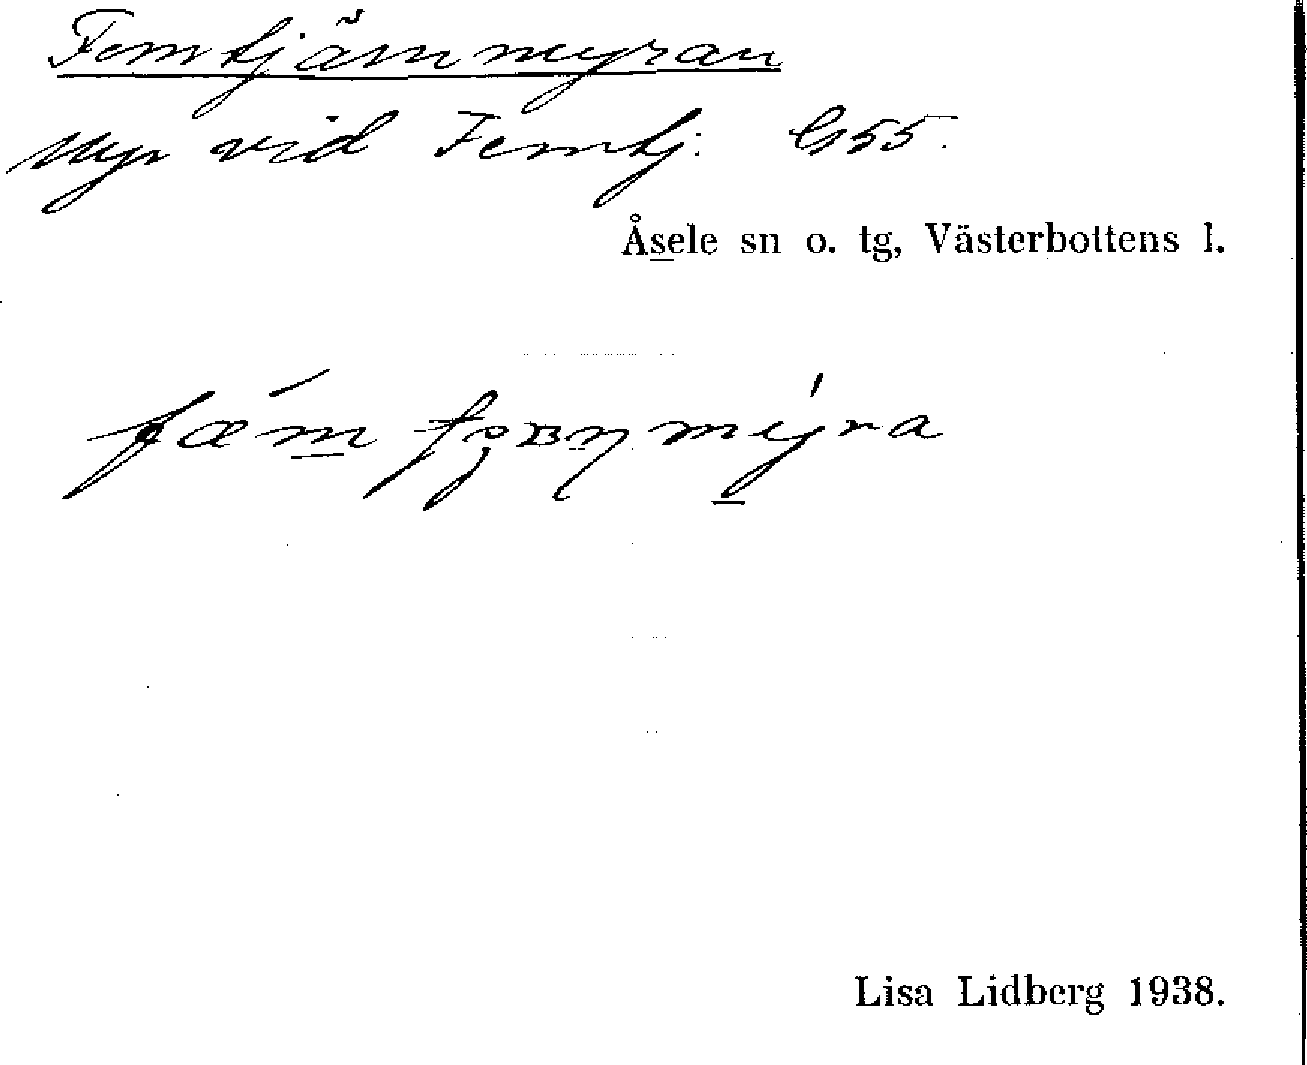 Femtjärnmyran
Myr vid Femtj. G55.
Åsele sn o. tg, Västerbottens l.
Lisa Lidberg 1938.